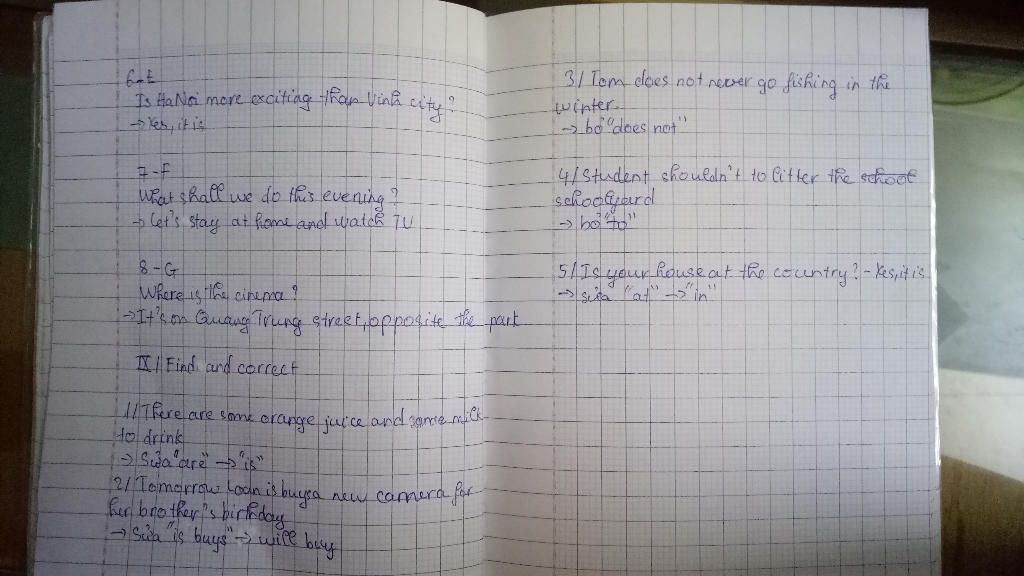 6-E
Is HaNoi more exciting than Vinh city?
→ Yes, it is
7-F
What shall we do this evening?
→ Let's stay at home and watch TV
8-G
Where is the cinema?
→ It's on Quang Trung street, opposite the park
IX/ Find and correct
1/ There are some orange juice and some milk
to drink
→ Sửa "are" → "is"
2/ Tomorrow Loan is buysa new camera for
her brother's birthday
→ Sửa "is buys" → will buy
3/ Tom does not never go fishing in the
winter.
→ bỏ "does not"
4/ Student shouldn't to litter the school
schoolyard
→ bỏ "to"
5/ Is your house at the country? - Yes, it is
→ sửa "at" → "in"